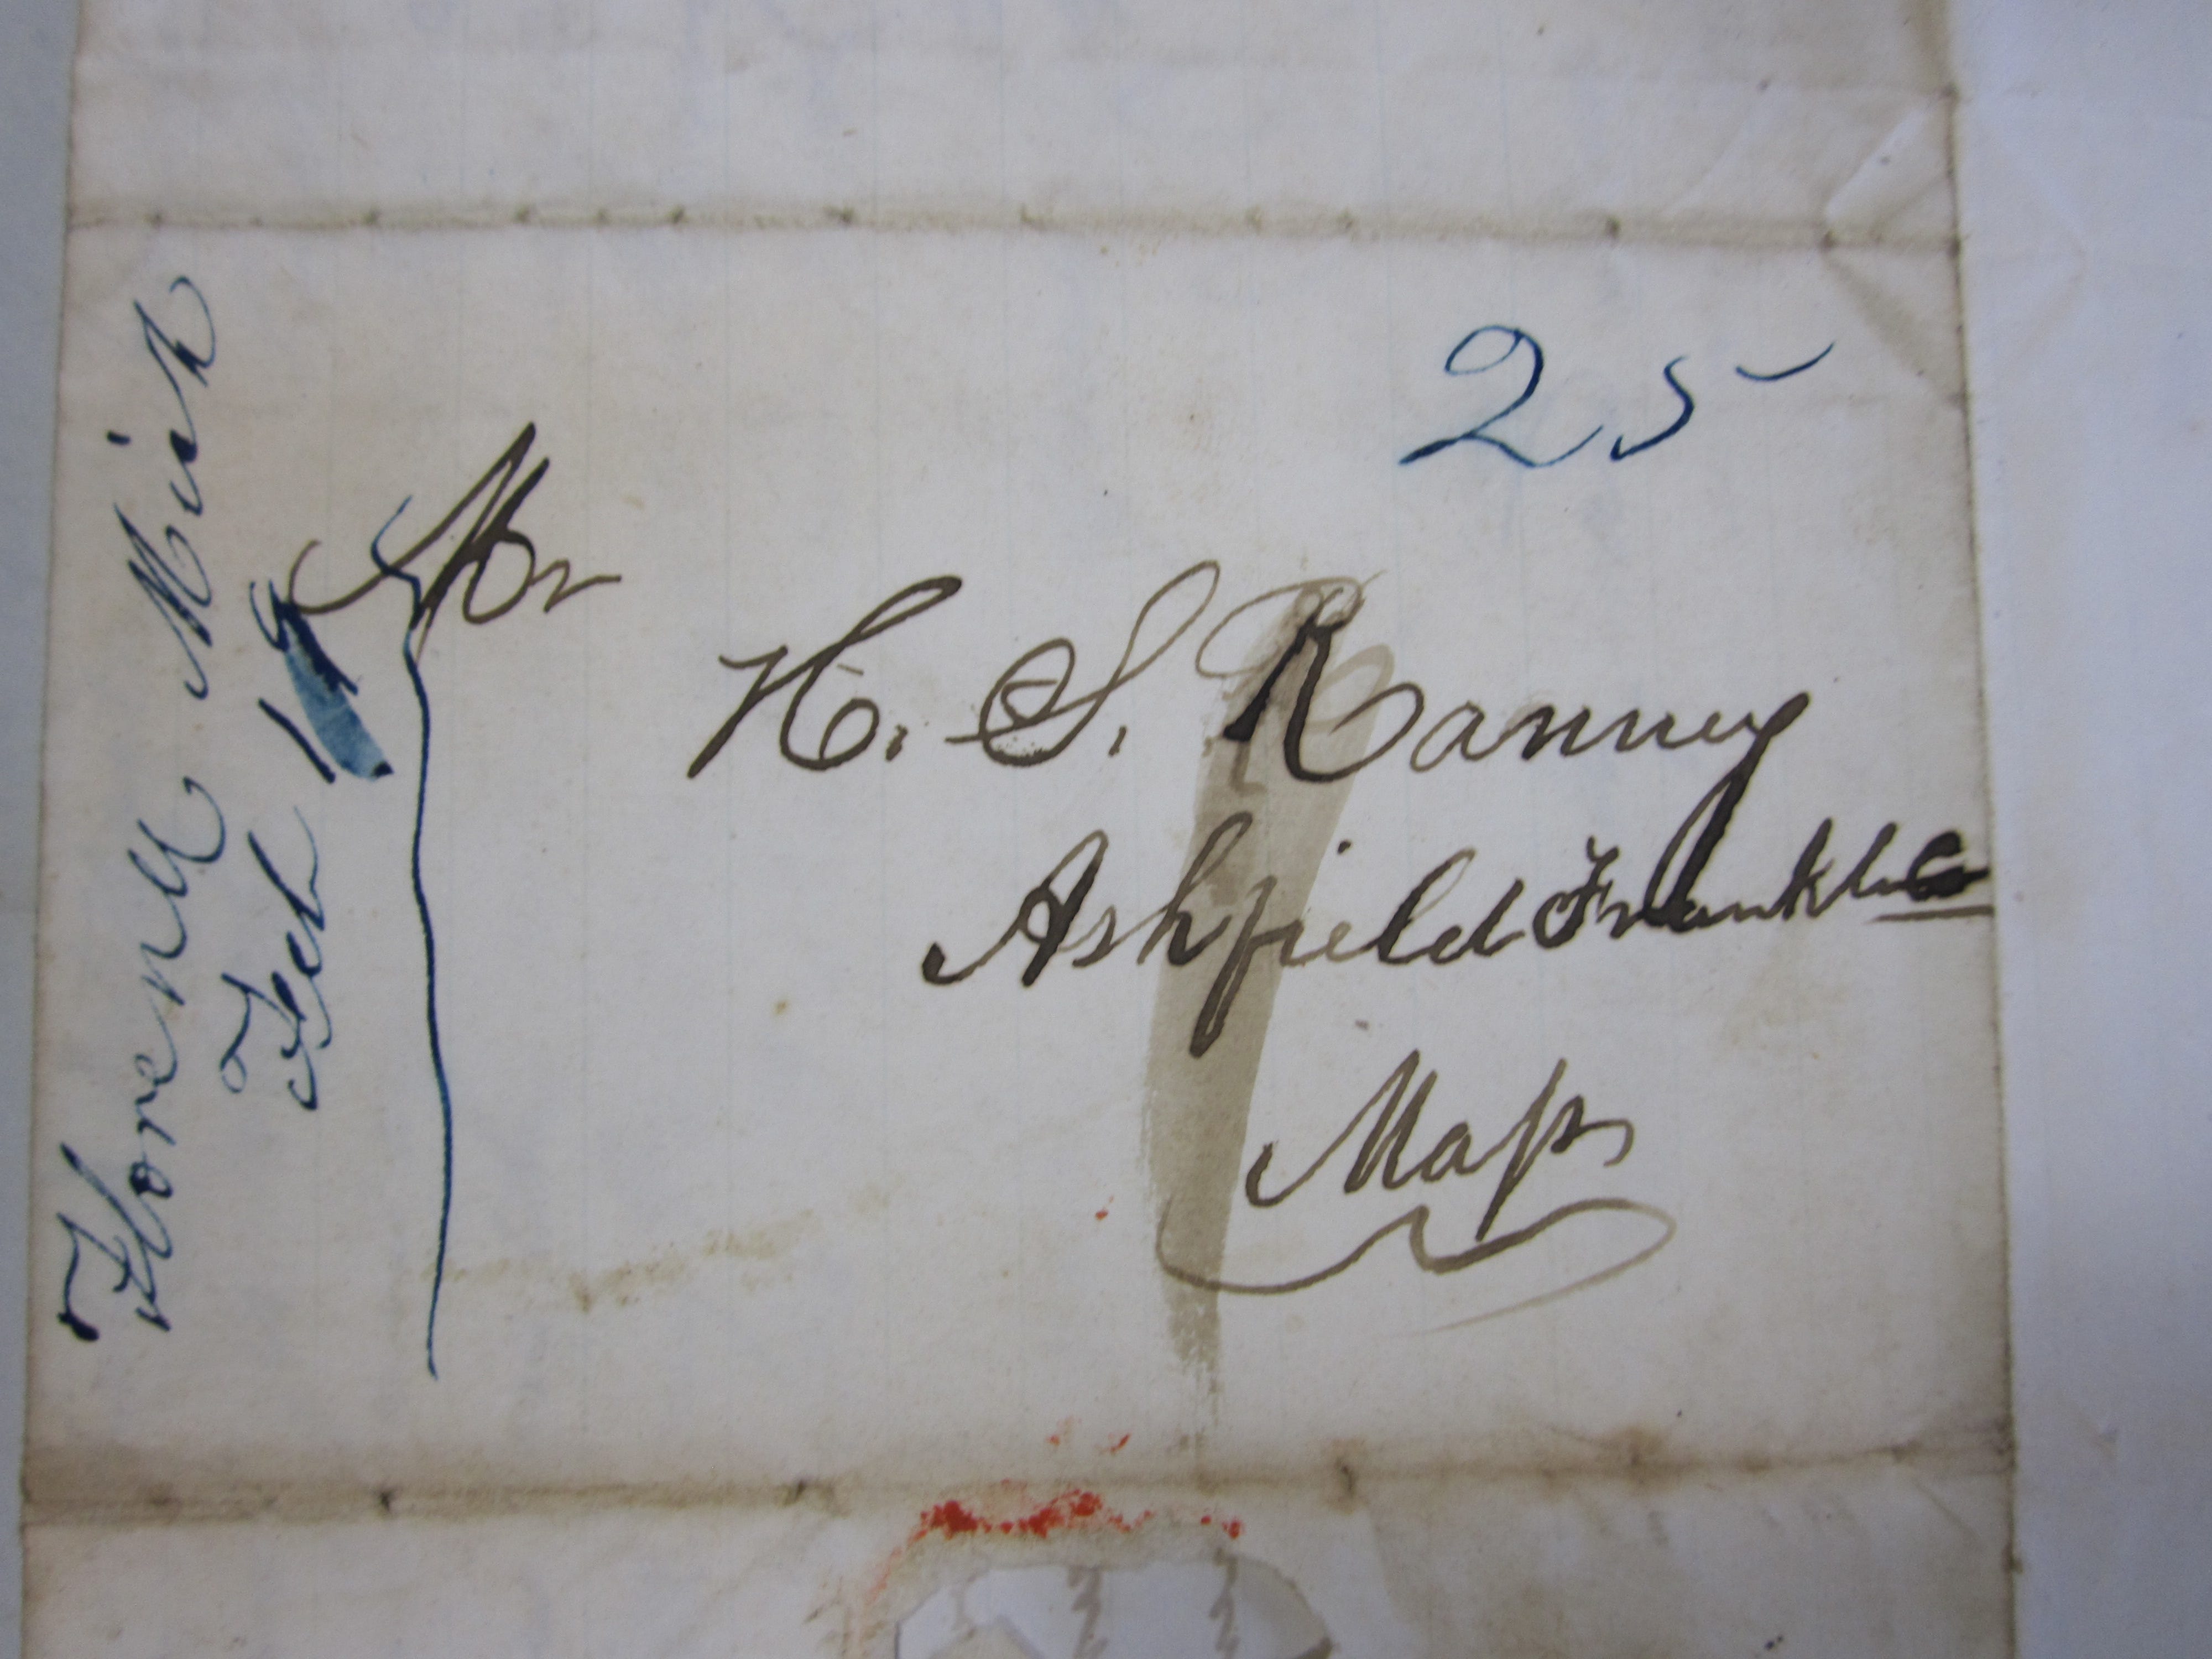 Florence Mich
Feb 1
25
Mr
H. S. Ranney
Ashfield Franklin Co
Mass